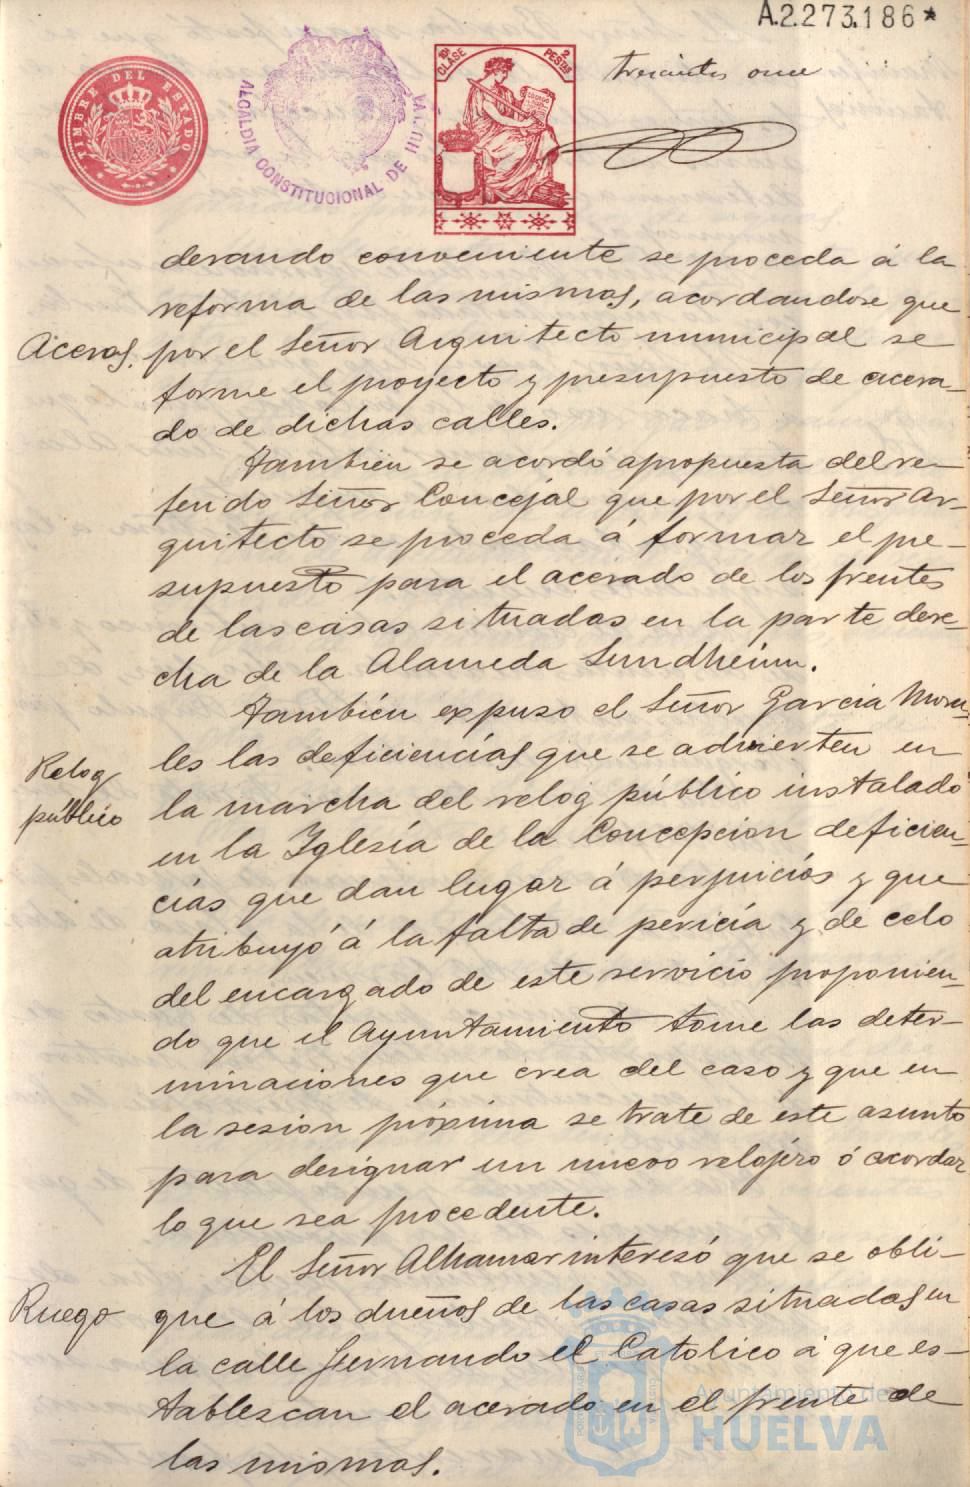 A.2.273.186*
TIMBRE DEL ESTADO
ALCALDIA CONSTITUCIONAL DE HU
10ª CLASE
2 PESTAS
trescientos once
derando conveniente se proceda á la
reforma de las mismas, acordandose que
Aceras. por el Señor Arquitecto municipal se
forme el proyecto y presupuesto de acera-
do de dichas calles.
También se acordó apropuesta del re-
ferido Señor Concejal que por el Señor Ar-
quitecto se proceda á formar el pre-
supuesto para el acerado de los frentes
de las casas situadas en la parte dere-
cha de la Alameda Sundheim.
También expuso el Señor Garcia Mora-
les las deficiencías que se advierten en
Relog
la marcha del relog público instalado
público
en la Iglesía de la Concepcion deficien-
cías que dan lugar á perjuiciós y que
atribuyó á la falta de pericía y de celo
del encargado de este servicio proponien-
do que el Ayuntamiento tome las deter-
minaciones que crea del caso y que en
la sesion próxima se trate de este asunto
para designar un nuevo relojéro ó acordar
lo que sea procedente.
El Señor Alhamar interesó que se obli-
Ruego
que á los dueños de las casas situadas en
la calle Fernando el Catolico á que es-
tablezcan el acerado en el frente de
las mismas.
Ayuntamiento de
HUELVA